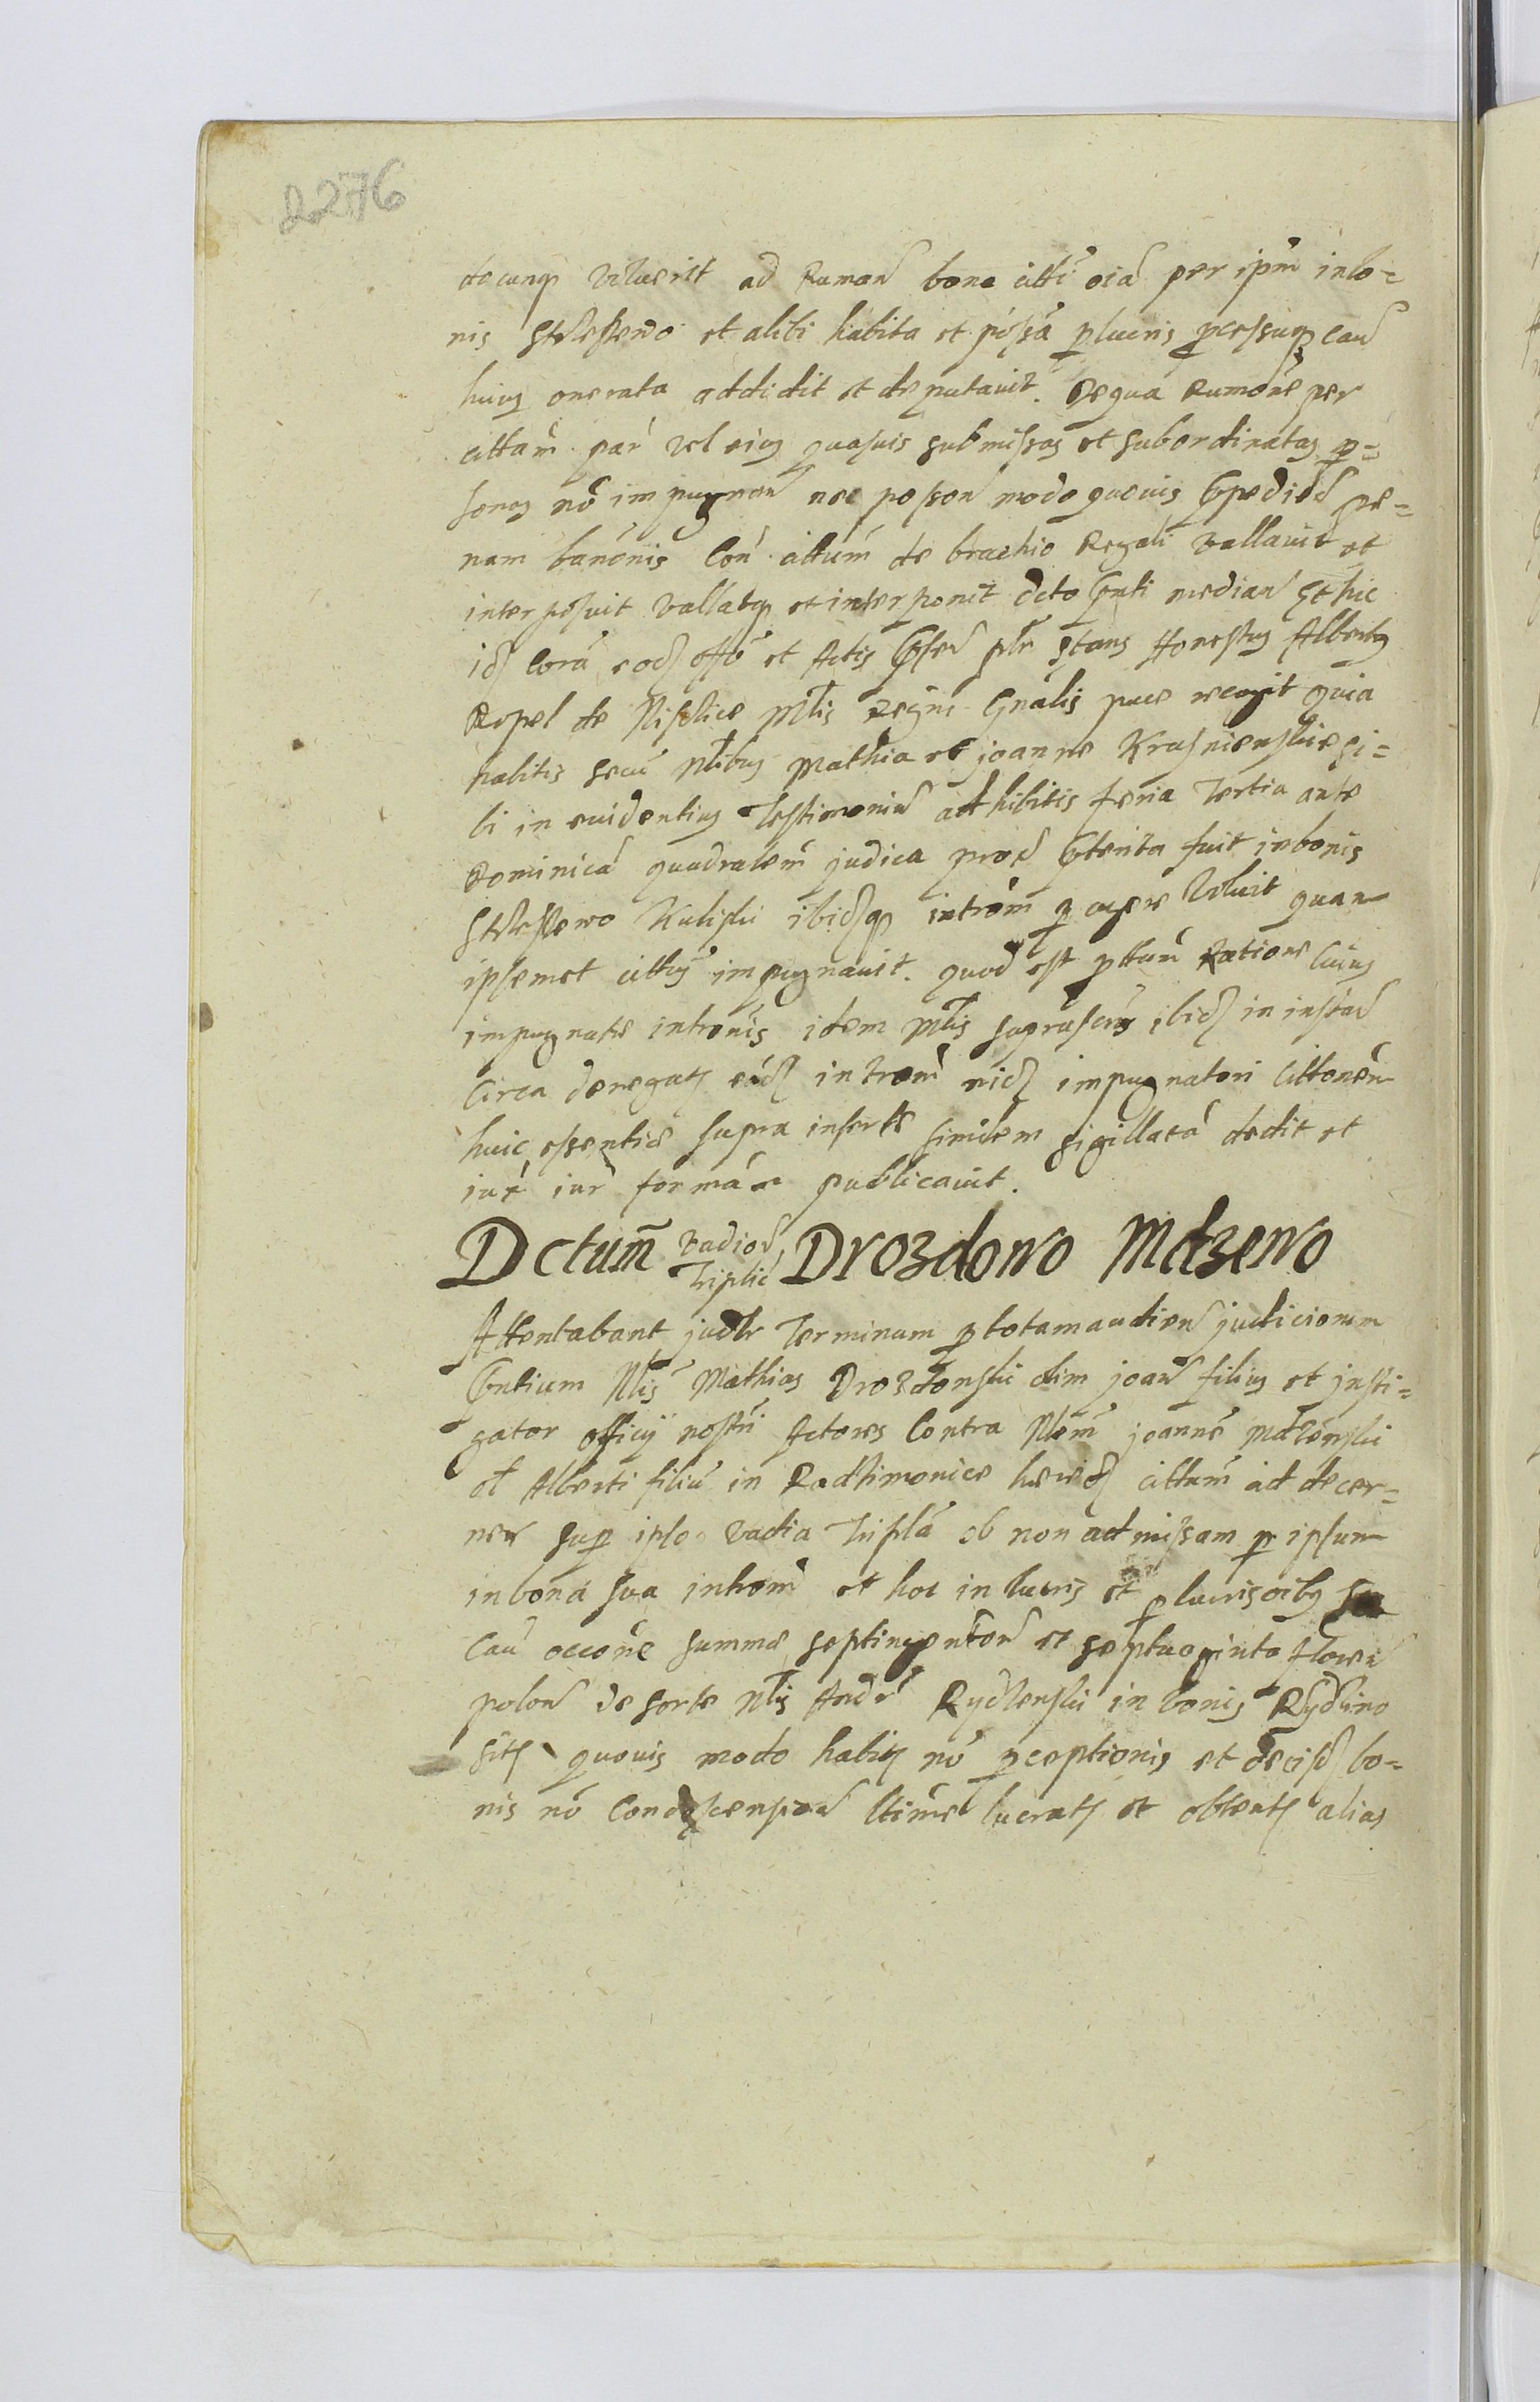 2276
decunq voluerit ad Ruman bona citti oia per ipm in bo=
nis et alibi habita et possa p lucris pcessuq cau
huius onerata addidit et deputavit. De qua Rumone per
cittam par vel eius quasuis submissas et subordinatas p=
sonas no impugnan nec posson modo quovis Gpedied pe=
nam banonis Con cittum de brachio Regali vallavit et
interposuit vallatq et interponit dcto Gnti median Et hic
id cora eod offo et Actis Gsen plr stans Honestus Albertus
Ropel de Mlis Regni Gnalis pace recogit quia
habitis secu Nlibus Mathia et joanne Krasnienskie si=
bi in evidentius Testimoniu adhibitis feria Tertia ante
Dominica quadralem judica prod Gtenta fuit in bonis
Kuliski ibidq introm p capere Voluit quam
ipsemet cittus impugnavit. quod est pttum Ratione Cuius
impugnate intronis idem Mlis suprascrus ibid in instad
Circa denegats eid introm nid impugnatori Cittonem
huic essentie supra inserte similem sigillata dedit et
iux iur forma publicavit.
Dctum vadior Triplic Drozdowo Mdzewo
Attentabant judlr Terminum p totam audien judiciorum
Gntium Nlis Mathias Drozdowski olim joan filius et insti=
gator officij nostri Actores Contra Nlem joanne Mdzewski
ol Alberti filiu in Radzimowice hered cittum ad decer=
nen sup ipso vadia Tripla ob non admissam p ipsum
in bona sua introm et hoc in lucris et p lucris oibus
cau occone summe septingentor et septuaginta floren
polon de sorte Nlis Andr Rydzewski in bonis Rydzino
sits quovis modo habits no pceptionis et decisd bo=
nis no Condescension ltime lucrats et obtents alias